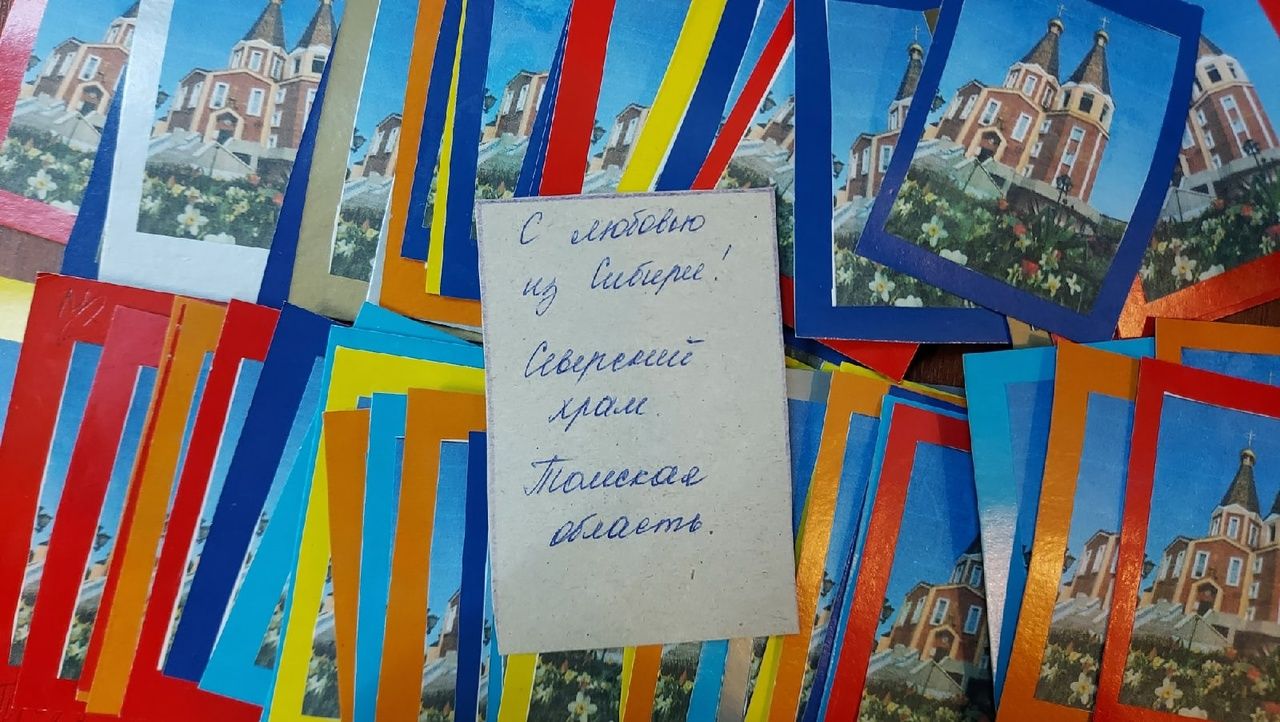 С любовью
из Сибири!
Северский
храм.
Томская
область.